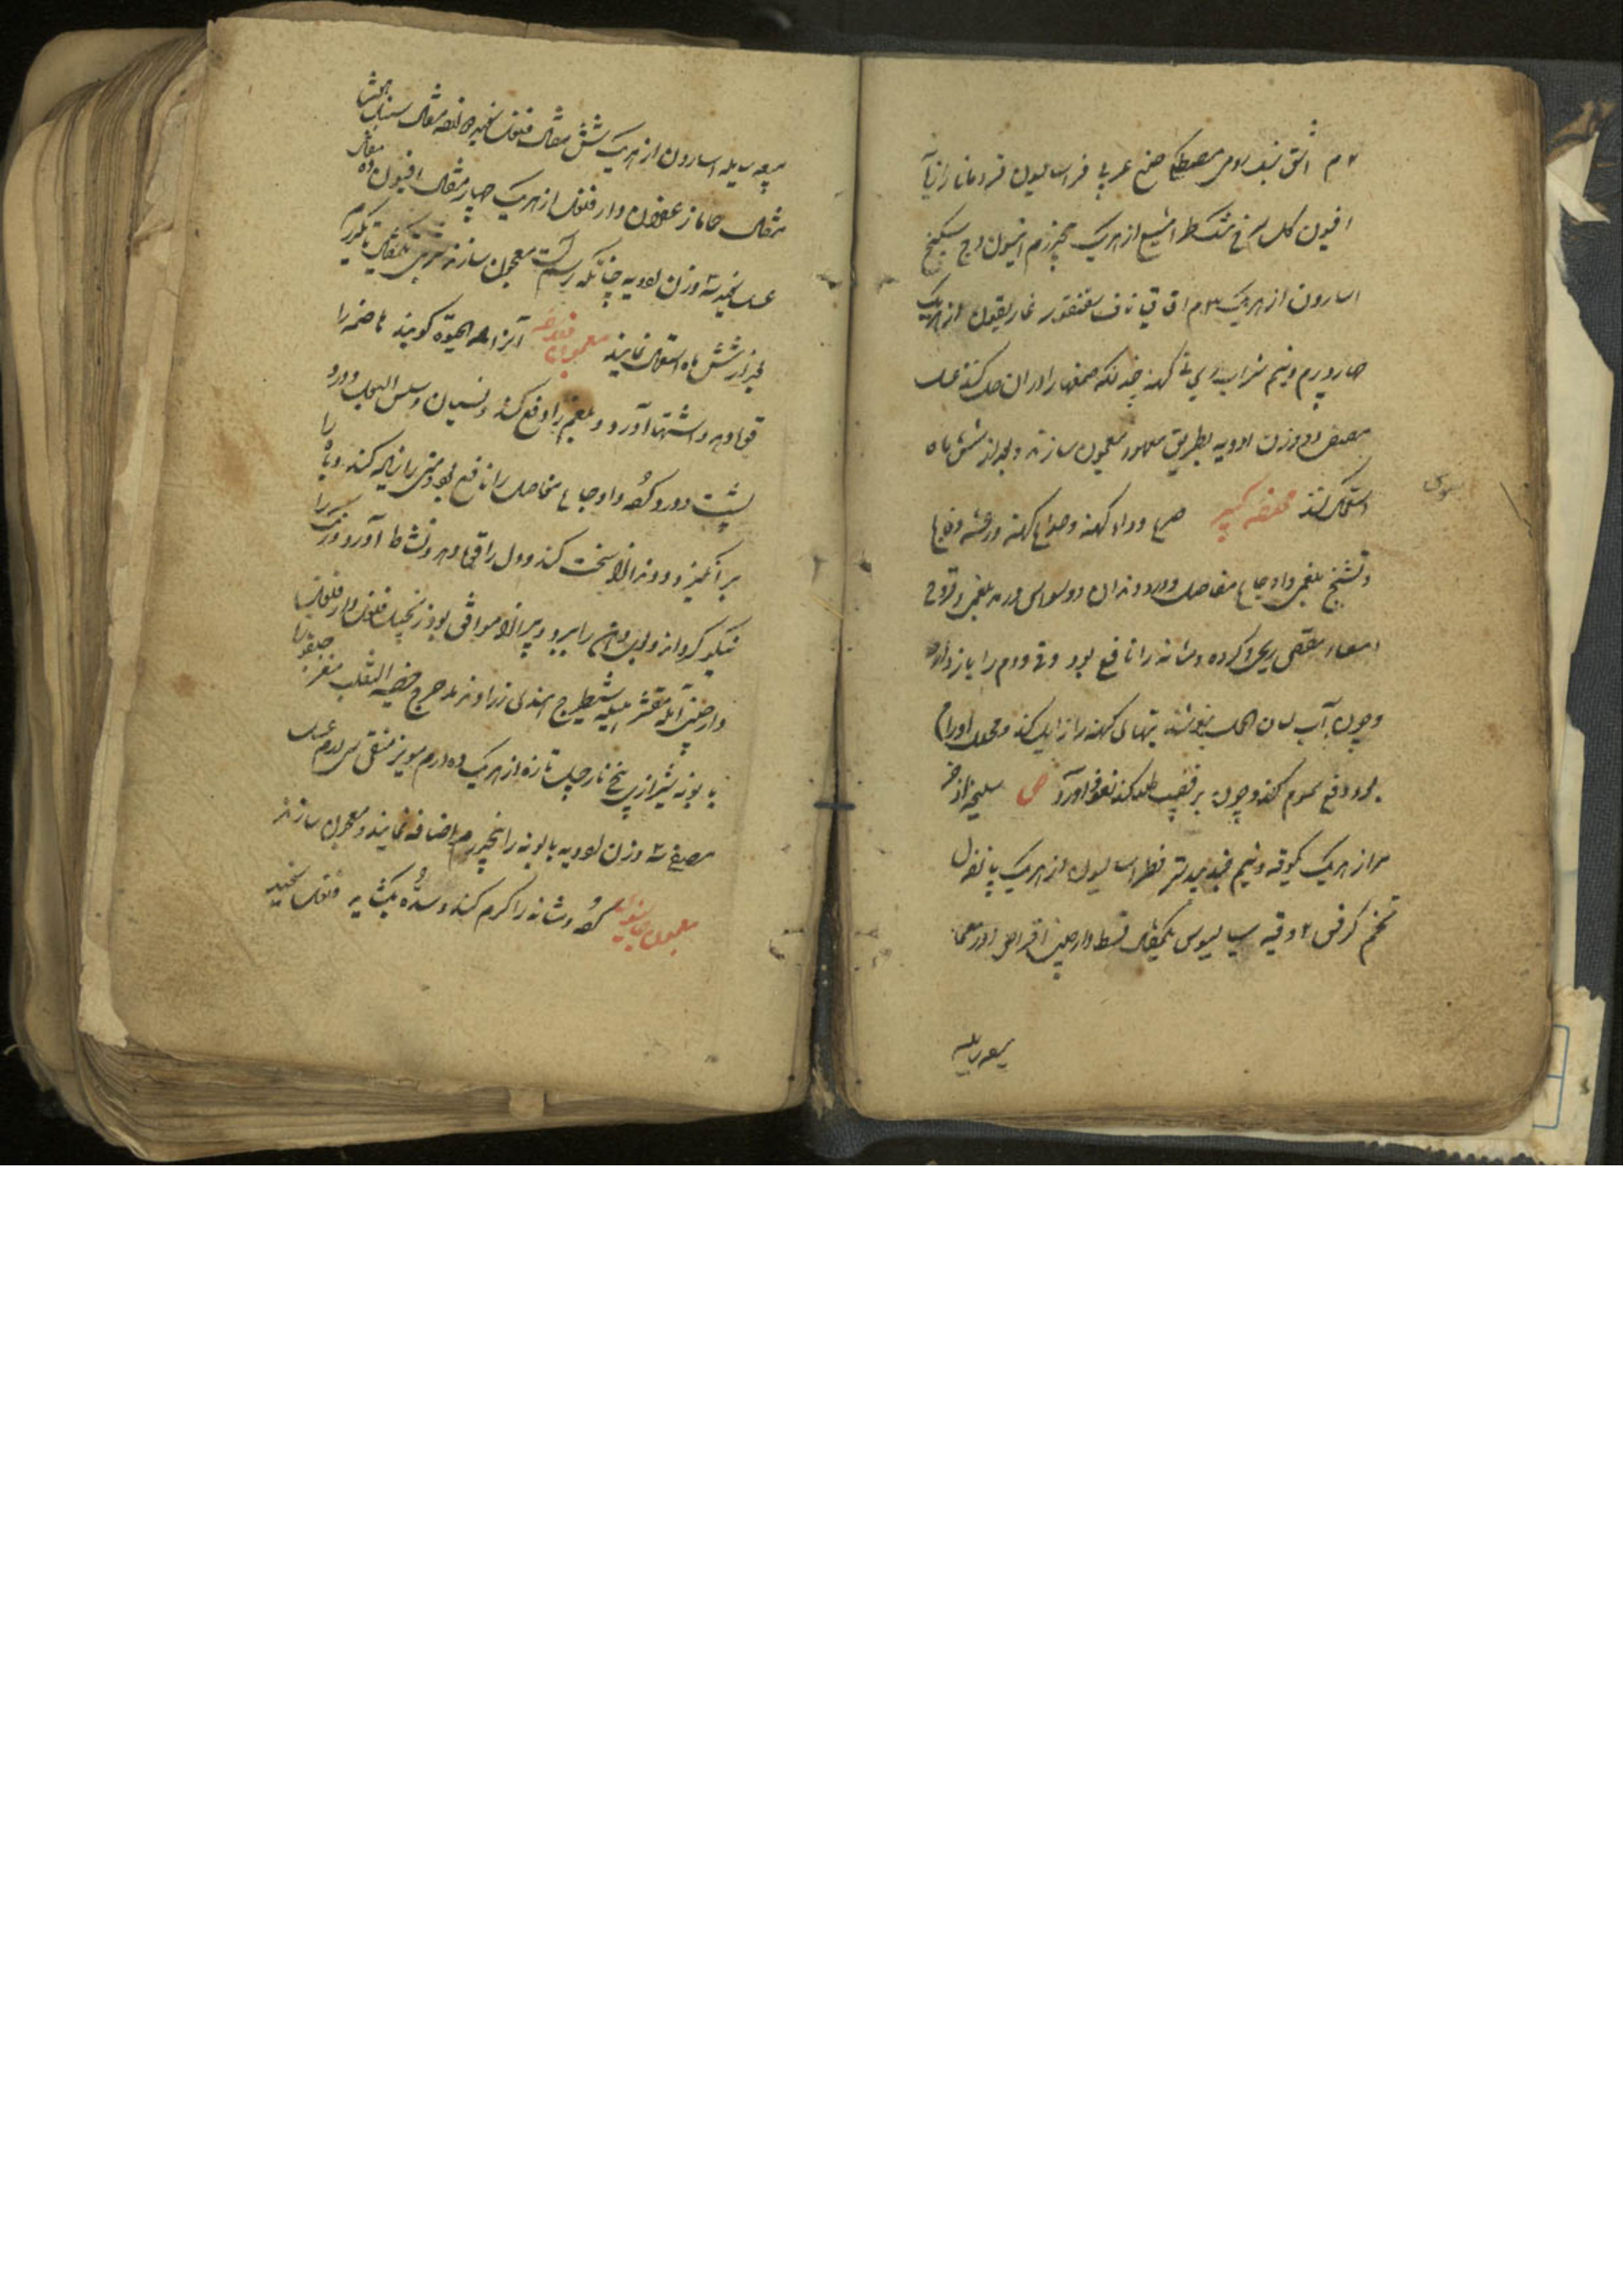 ۲م اشق سنبل رومی مصطکی صمغ عربی فراسالیون قردمانا رازیانه
افیون گل سرخ مشکطرامشیع از هریک پنجدرم انیسون وج سکبینج
اسارون از هریک ۳م اقاقیا ناف سقنقور غاریقون از هریک
چاردرم ونیم شراب ریحانی کهنه چندانکه صمغها را در ان حل کنند عسل
مصفی دو وزن ادویه بطریق معهود معجون سازند و بعد از شش ماه
استعمال کنند مخلصه کبیر صرع ودوار کهنه وصداع کهنه ورعشه وفالج
وتشنج بلغمی واوجاع مفاصل ودرد دندان ووسواس ورمد بلغمی وقروح
امعا ومغص ریحی وکرده ومثانه را نافع بود وقی ودم را باز دارد
وچون بآب لسان الحمل بنوشند تبهای کهنه را زایل کند ومحلل اورام
بود ودفع سموم کند وچون بر قضیب طلا کنند نعوظ آورد ص سلیخه اذخر
مر از هریک یکوقیه ونیم جندبیدستر فطراسالیون از هریک
تخم کرفس ۲ وقیه سیسالیوس یکمثقال قسط دارچینی اقراص
میعه سایله
میعه سایله اسارون از هریک شش مثقال فلفل سفید مثقال سنبل هشت
مثقال حماما زعفران دارفلفل از هریک چهار مثقال افیون ده مثقال
عسل سفید سه وزن ادویه چنانکه رسم است معجون سازند شربتی یکمثقال تا یکدرم
بعد از شش ماه استعمال نمایند معجون فلاسفه آنرا مادة الحیوة گویند هاضمه را
قوة دهد واشتها آورد وبلغم را دفع کند ونسیان وسلس البول ودرد
پشت ودرد گرده واوجاع مفاصل را نافع بود ومنی را زیاده کند وباه را
برانگیزد ودندانرا سخت کند ودل را قوة دهد ونشاط آورد ورنگ را
نیکو گرداند وبوی دهن را ببرد وپیرانرا موافق بود زنجبیل فلفل دارفلفل
دارچینی آمله مقشر بلیله شیطرج هندی زراوند مدحرج خصیة الثعلب مغز چلغوزه
بابونه شیرازی بیخ نارجیل تازه از هریک ده درم مویز منقی سی درم عسل
مصفی سه وزن ادویه بابونه را پنجدرم اضافه نمایند ومعجون سازند
معجون گرده ومثانه را گرم کند وسده بگشاید فلفل سفید